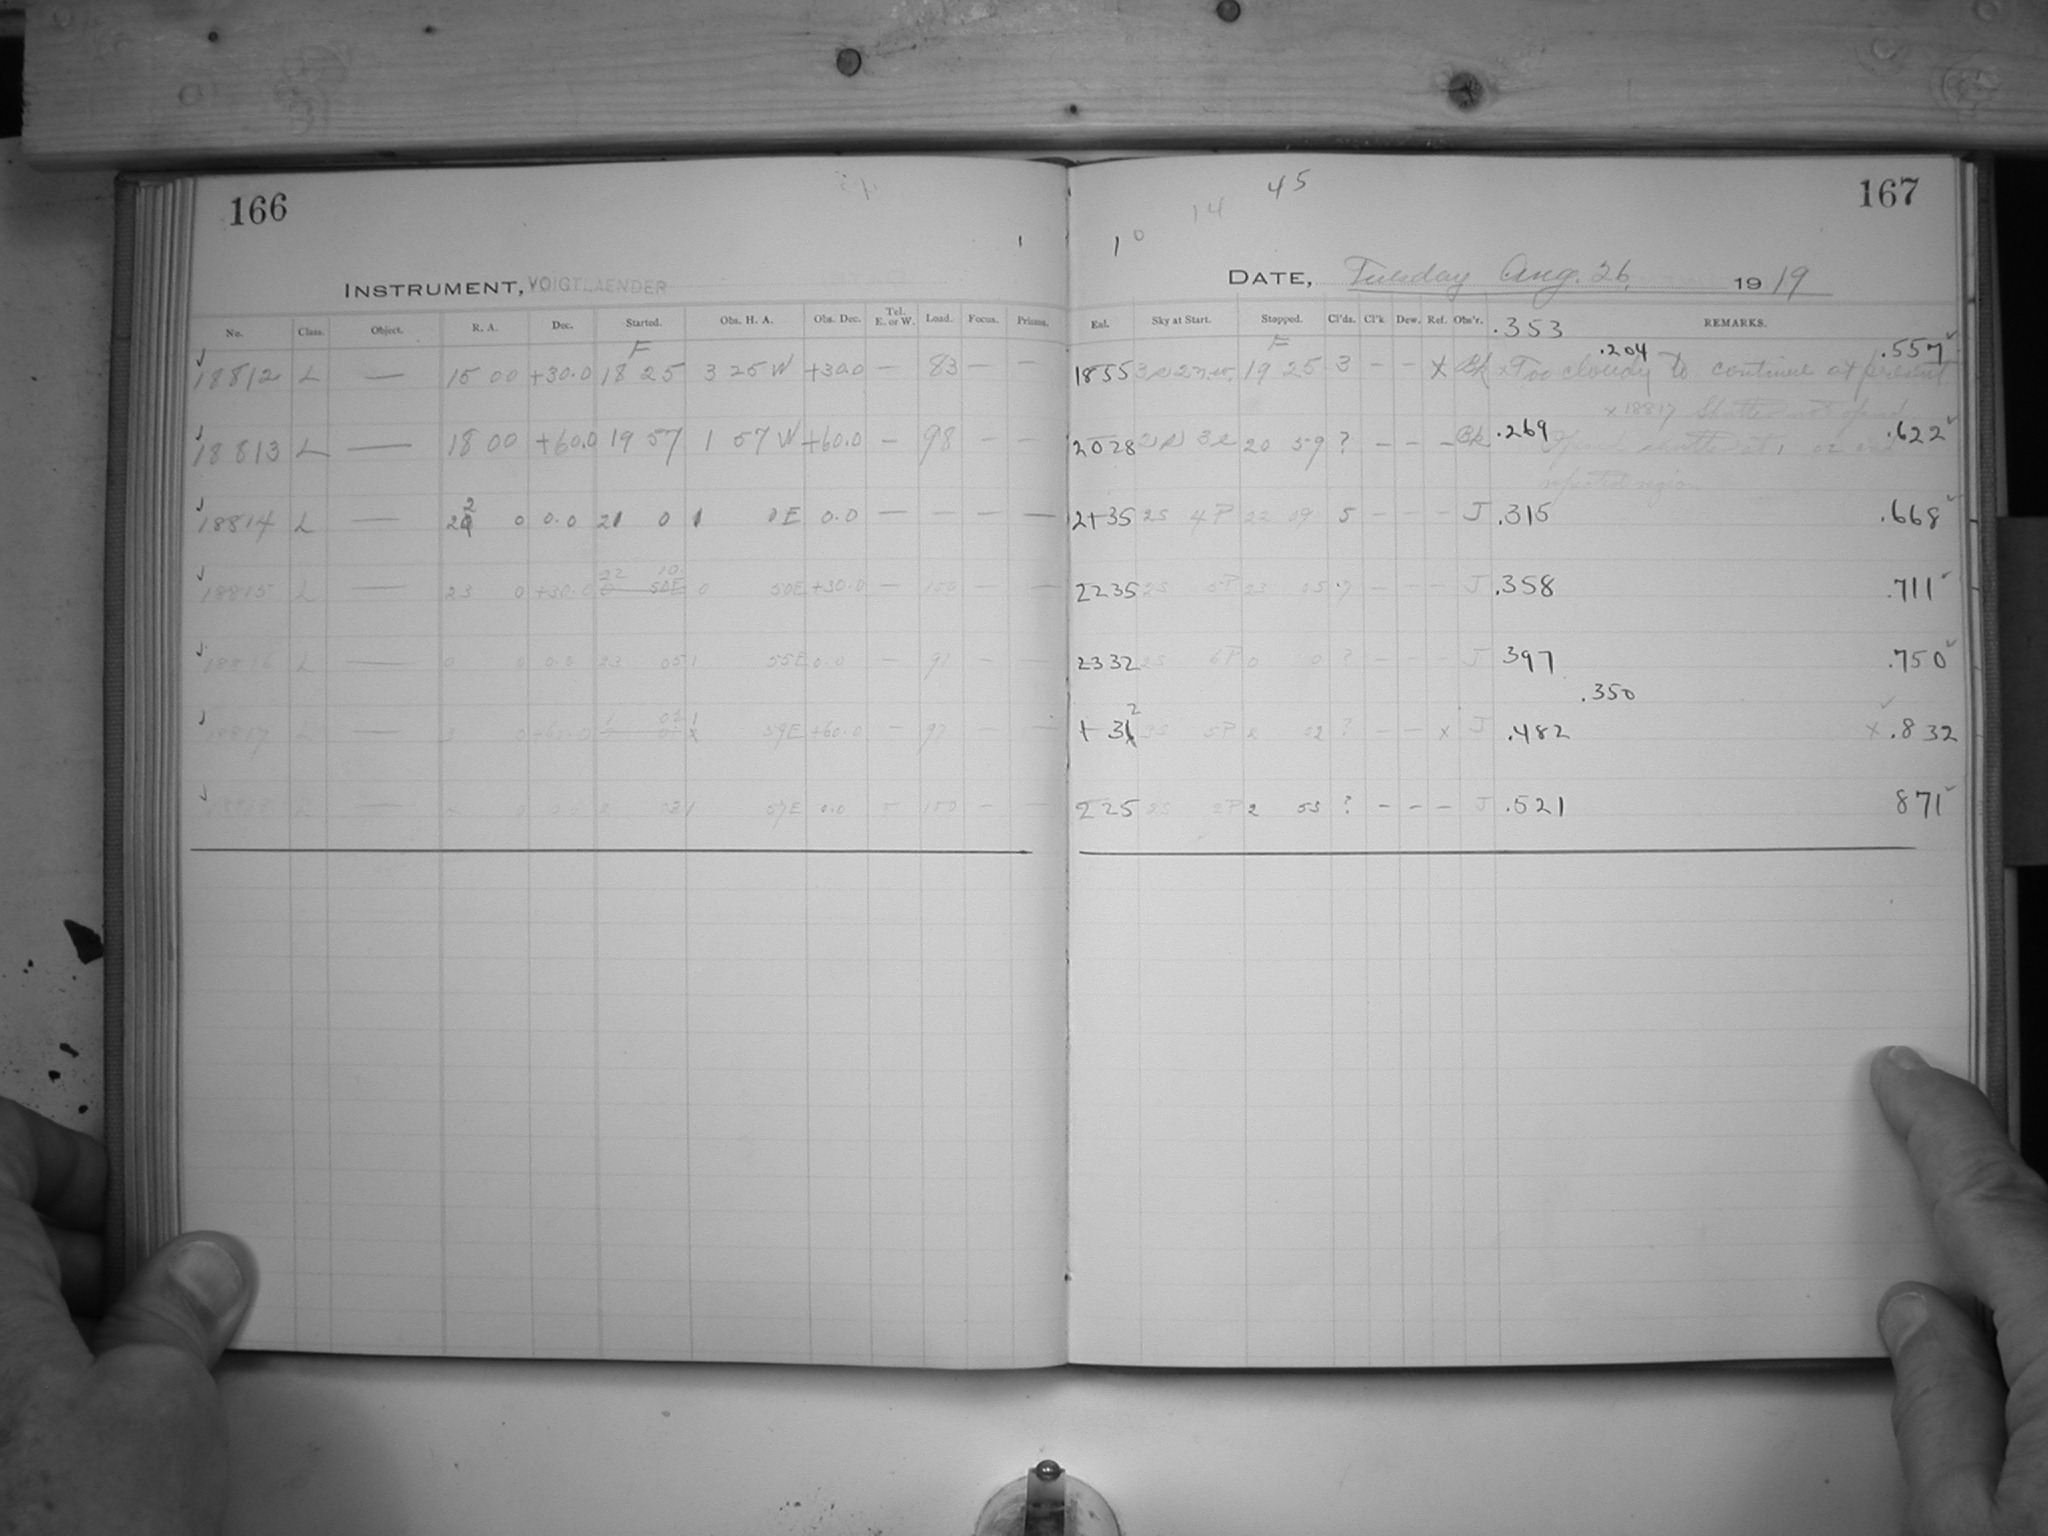 166
45
167
14
1
1 0
INSTRUMENT, VOIGTLAENDER
DATE, Tuesday Aug. 26, 1919
No. Class. Object. R. A. Dec. Started. Obs. H. A. Obs. Dec. Tel. E. or W. Load. Focus. Prisms. Eal. Sky at Start. Stopped. Cl'ds. Cl'k Dew. Ref. Obs'r. .353 REMARKS.
F F .204 .557
18812 L — 15 00 +30.0 18 25 3 25 W +30.0 — 83 — — 1855 19 25 3 - - x Bk x Too cloudy to continue at present
x 18817 Shutter not opened
18813 L — 18 00 +60.0 19 57 1 57 W +60.0 — 98 - - 2028 20 59 ? - - - Bk .269 .622
Opened shutter at 1 02 and
repeated region
18814 L — 22 0 0.0 21 0 1 0E 0.0 — — — — 2135 2S 4P 22 09 5 - - - J .315 .668
22 10
18815 L — 23 0 +30.0 0 50E 0 50E +30.0 — 150 — — 2235 2S 5P 23 05 ? - - - J .358 .711
18816 L — 0 0 0.0 23 05 1 55E 0.0 — 91 — — 2332 2S 6P 0 0 ? - - - J 397 .750
.350
1 02
18817 L — 3 0 +60.0 1 59E +60.0 — 97 — — 1 32 3S 5P 2 02 ? - - x J .482 x .832
18818 L — 4 0 0.0 2 03 1 57E 0.0 150 — — 225 2S 2P 2 53 ? - - - J .521 871